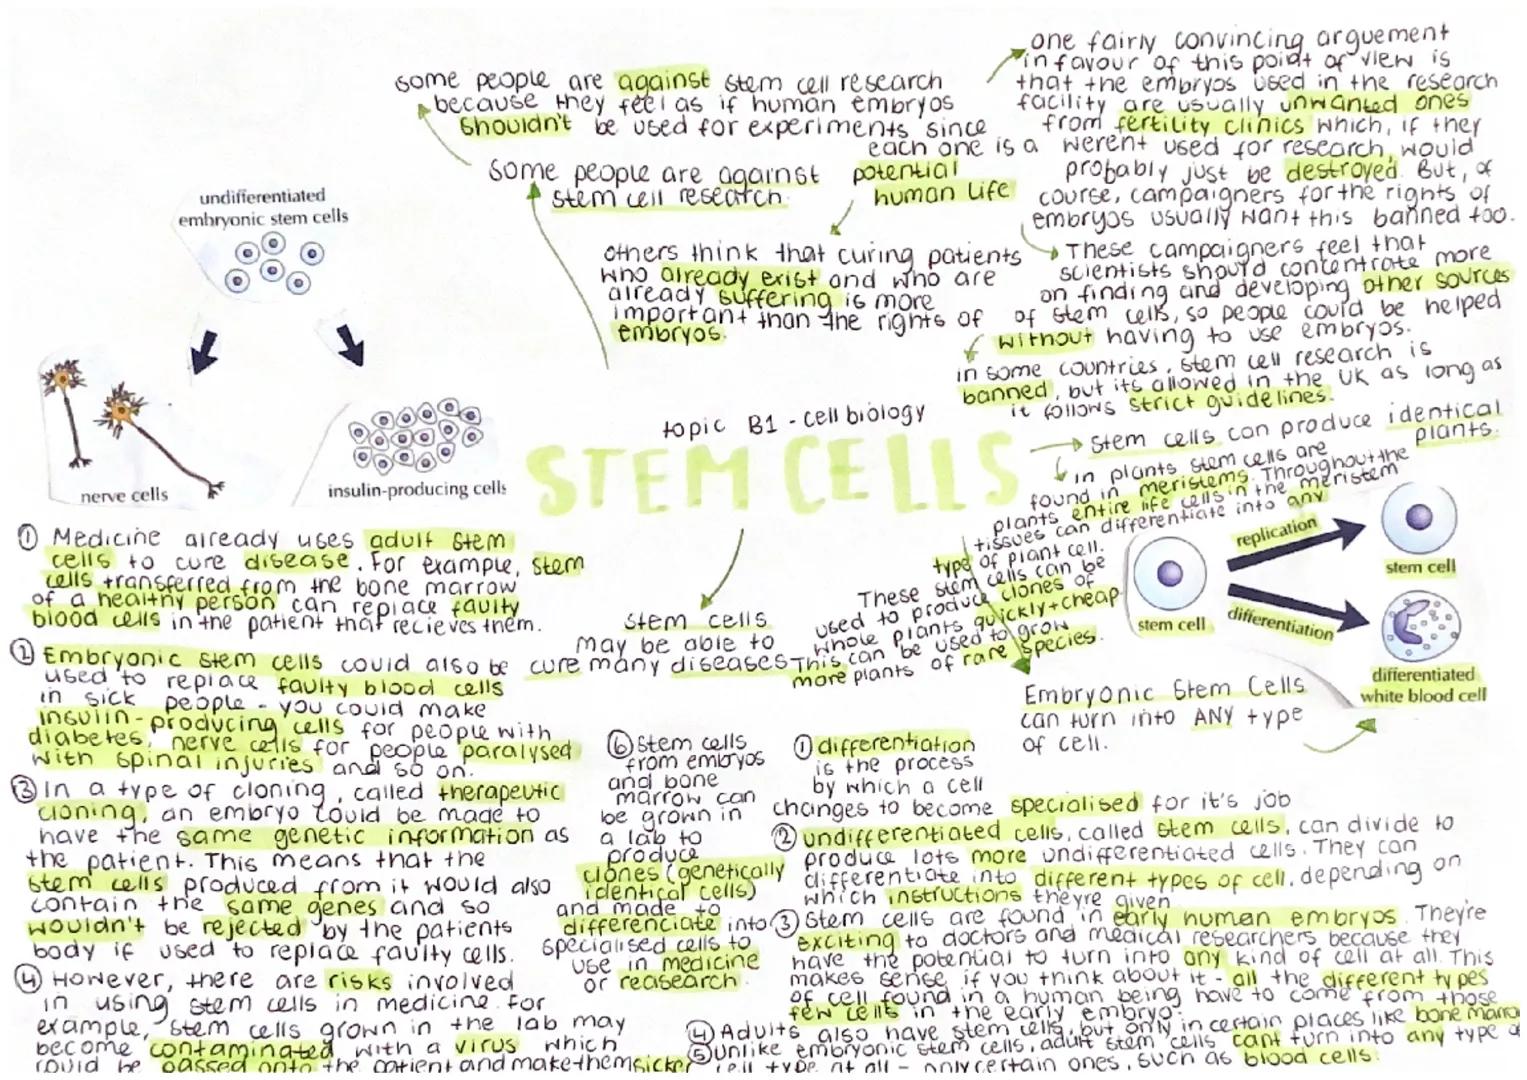 some people are against stem cell research
because they feel as if human embryos
shouldn't be used for experiments since
each one is a
potential
human life
some people are against
stem cell research.
others think that curing patients
who already exist and who are
already suffering is more
important than the rights of
embryos.
one fairly convincing arguement
in favour of this point of view is
that the embryos used in the research
facility are usually unwanted ones
from fertility clinics which, if they
werent used for research, would
probably just be destroyed. But, of
course, campaigners for the rights of
embryos usually want this banned too.
These campaigners feel that
scientists should concentrate more
on finding and developing other sources
of stem cells, so people could be helped
without having to use embryos.
in some countries, stem cell research is
banned, but its allowed in the UK as long as
it follows strict guidelines.
undifferentiated
embryonic stem cells
nerve cells
insulin-producing cells
topic B1 - cell biology
STEM CELLS
stem cells can produce identical
plants.
in plants stem cells are
found in meristems. Throughout the
plants entire life cells in the meristem
tissues can differentiate into any
type of plant cell.
These stem cells can be
used to produce clones of
whole plants quickly+cheap
This can be used to grow
more plants of rare species.
replication
stem cell
stem cell
differentiation
differentiated
white blood cell
Stem cells
may be able to
cure many diseases
Embryonic Stem Cells
can turn into ANY type
of cell.
① Medicine already uses adult stem
cells to cure disease. For example, stem
cells transferred from the bone marrow
of a healthy person can replace faulty
blood cells in the patient that recieves them.
② Embryonic stem cells could also be
used to replace faulty blood cells
in sick people - you could make
insulin-producing cells for people with
diabetes, nerve cells for people paralysed
with spinal injuries and so on.
③ In a type of cloning, called therapeutic
cloning, an embryo could be made to
have the same genetic information as
the patient. This means that the
stem cells produced from it would also
contain the same genes and so
wouldn't be rejected by the patients
body if used to replace faulty cells.
④ However, there are risks involved
in using stem cells in medicine. for
example, stem cells grown in the lab may
become contaminated with a virus which
could be passed onto the patient and make them sicker
⑥ Stem cells
from embryos
and bone
marrow can
be grown in
a lab to
produce
clones (genetically
identical cells)
and made to
differenciate into
specialised cells to
use in medicine
or reasearch.
① differentiation
is the process
by which a cell
changes to become specialised for it's job
② undifferentiated cells, called stem cells, can divide to
produce lots more undifferentiated cells. They can
differentiate into different types of cell, depending on
which instructions theyre given
③ Stem cells are found in early human embryos. They're
exciting to doctors and medical researchers because they
have the potential to turn into any kind of cell at all. This
makes sense if you think about it - all the different types
of cell found in a human being have to come from those
few cells in the early embryo.
④ Adults also have stem cells, but only in certain places like bone marro
⑤ Unlike embryonic stem cells, adult stem cells cant turn into any type o
cell type at all - only certain ones, such as blood cells.